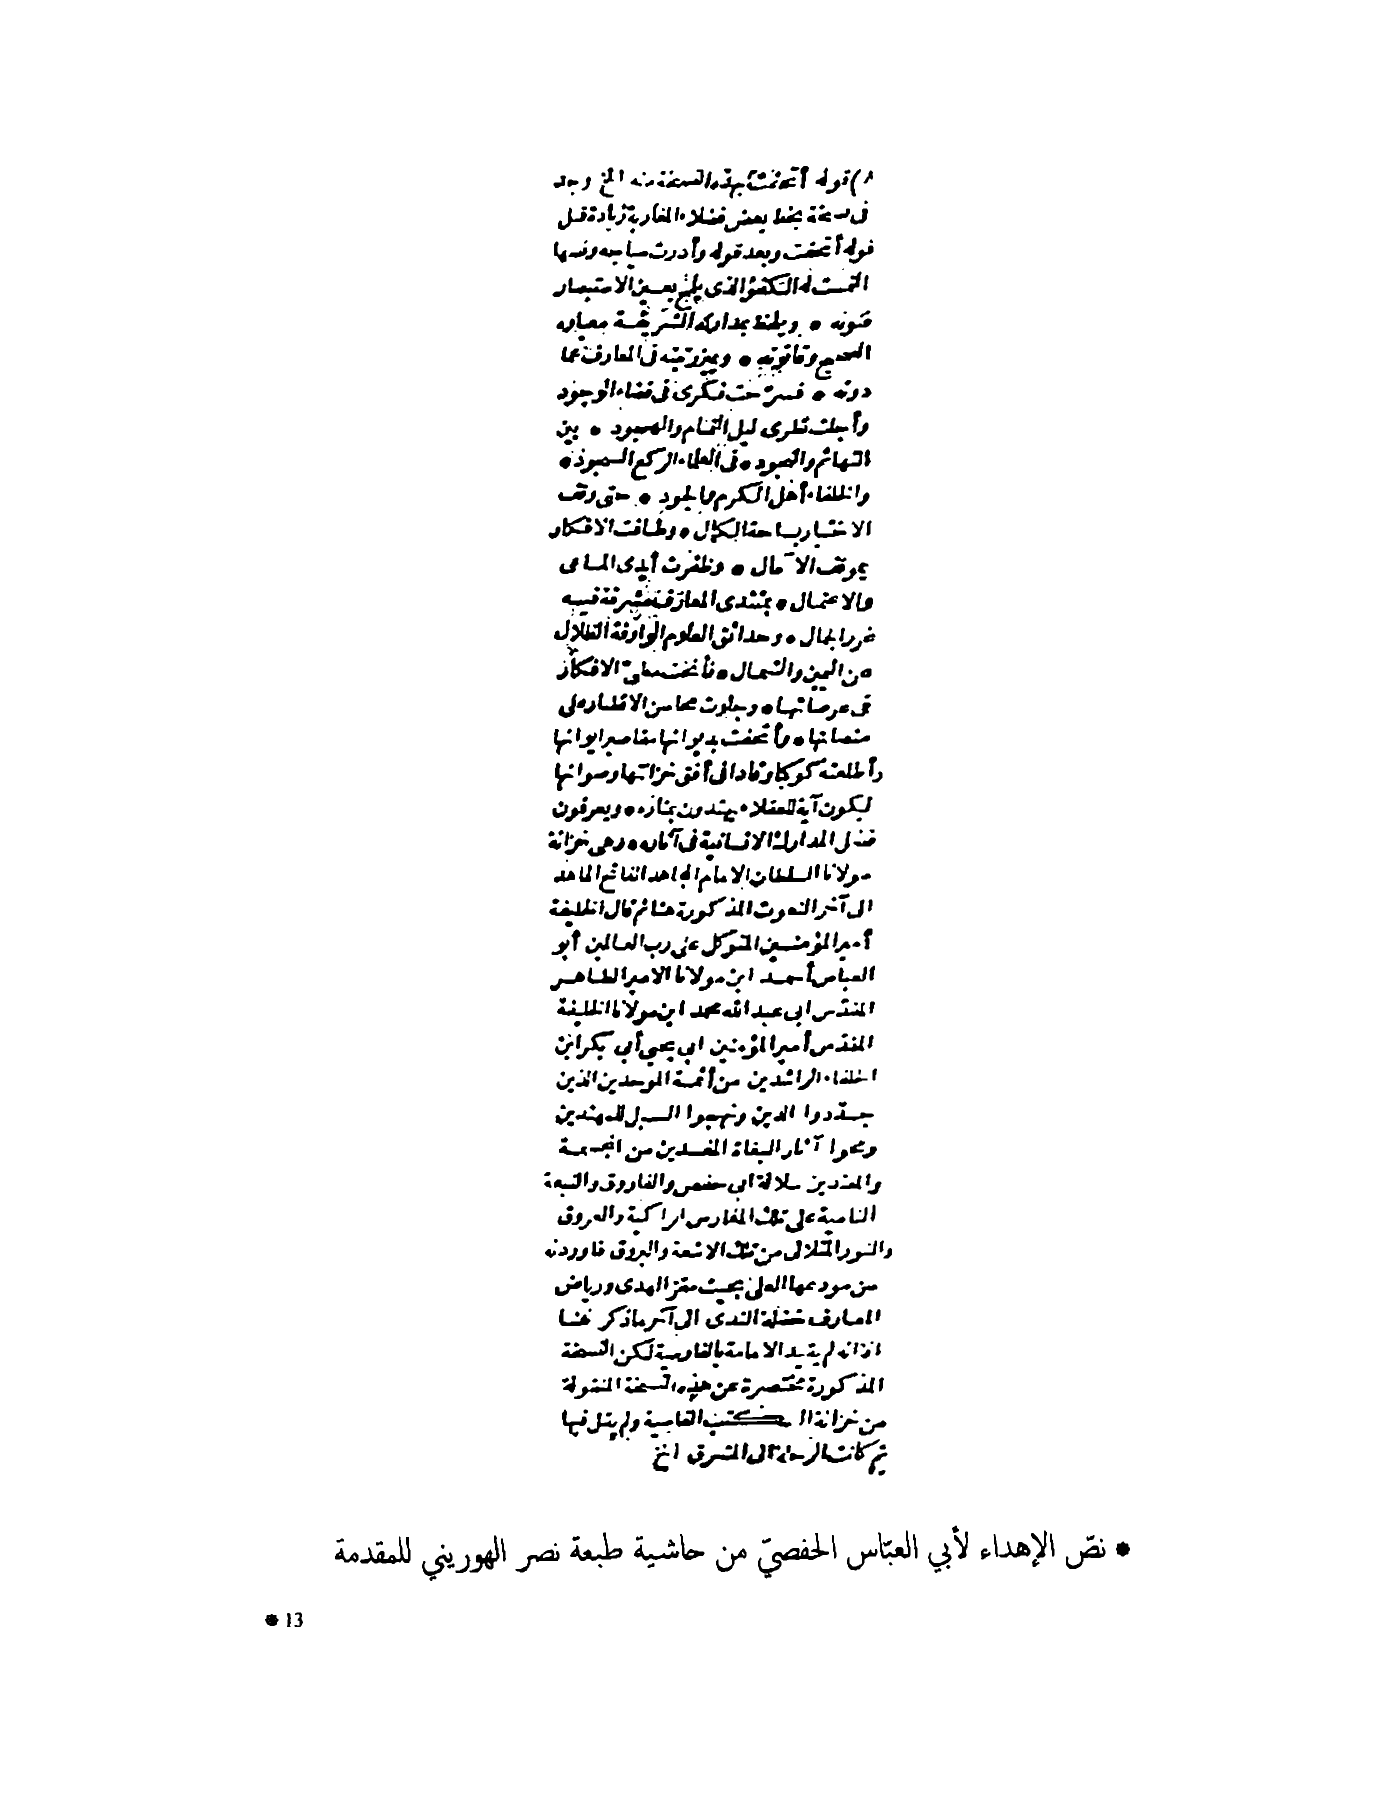 ١) قوله أتحفت بهذه النسخة منه الخ وجد
في نسخة بخط بعض فضلاء المغاربة زيادة قبل
قوله أتحفت وبعد قوله وأدرت سياجه ونصها
التمست له الكفؤ الذي يلمح بعين الاستبصار
فنونه • ويلحظ بمداركه الشريفة معياره
الصحيح وقانونه • ويميز رتبته في المعارف عما
دونه • فسرّحت فكري في فضاء الوجود
وأجلت نظري ليل التمام والهجود • بين
التهائم والنجود • في العلماء الركع السجود •
والخلفاء أهل الكرم والجود • حتى وقف
الاختيار بساحة الكمال • وطافت الافكار
بموقف الآمال • وظفرت أيدي المساعي
والاعتمال • بمنتدى المعارف مشرقة فيه
غرر الجمال • وحدائق العلوم الوارفة الظلال
عن اليمين والشمال • فأنخت مطيّ الافكار
في عرصاتها • وجلوت محاسن الانظار على
منصاتها • وأتحفت بديوانها مقاصير ايوانها
وأطلعته كوكبا وقادا في أفق خزانتها وصوانها
ليكون آية للعقلاء يهتدون بمناره • ويعرفون
فضل المدارك الانسانية في آثاره • وهي خزانة
مولانا السلطان الامام المجاهد الفاتح الماهد
الى آخر النعوت المذكورة هنا ثم قال الخليفة
أمير المؤمنين المتوكل على رب العالمين أبو
العباس أحمد ابن مولانا الامير الطاهر
المقدّس ابي عبد الله محمد ابن مولانا الخليفة
المقدّس أمير المؤمنين ابي يحيى أبي بكر ابن
الخلفاء الراشدين من أئمة الموحدين الذين
جدّدوا الدين ونهجوا السبل للمهتدين
ومحوا آثار البغاة المفسدين من المجسمة
والمعتدين سلالة ابي حفص والفاروق والنبعة
النامية على تلك المغارس الزاكية والعروق
والنور المتلألئ من تلك الاشعة والبروق فأوردته
من مودعها العليّ بحيث مقرّ الهدى ورياض
المعارف خضلة الندى الى آخر ما ذكر هنا
الا انه لم يقيد الامامة بالفارسية لكن النسخة
المذكورة مختصرة عن هذه النسخة المنقولة
من خزانة الكتب الفاسية ولم يقل فيها
ثم كانت الرحلة الى المشرق الخ
• نصّ الإهداء لأبي العبّاس الحفصيّ من حاشية طبعة نصر الهوريني للمقدمة
• 13